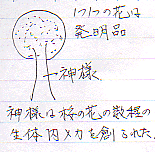 1つ1つの花は
発明品
神様
神様は桜の花の数程の
生体内メカを創られた。